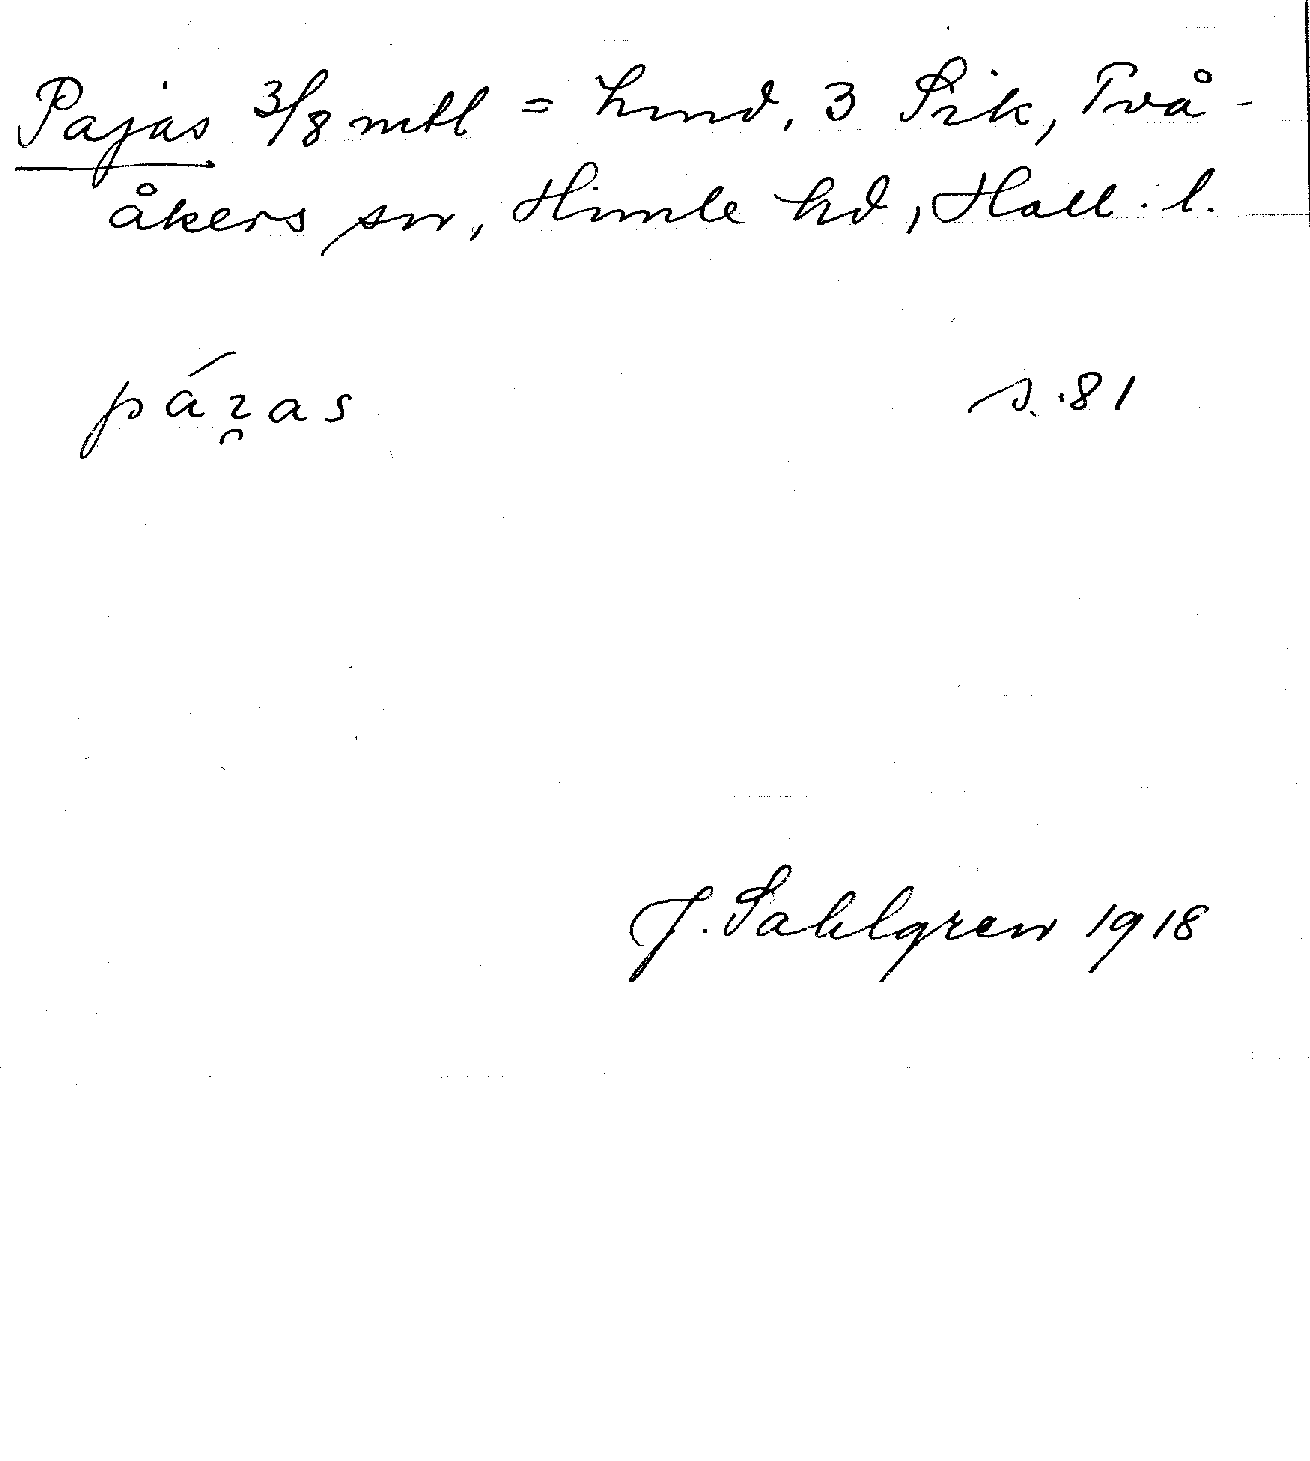 Pajas 3/8 mtl = hmd. 3 Sik, Två-
åkers sn, Himle hd, Hall. l.
pá𝑟̯as s. 81
J. Sahlgren 1918